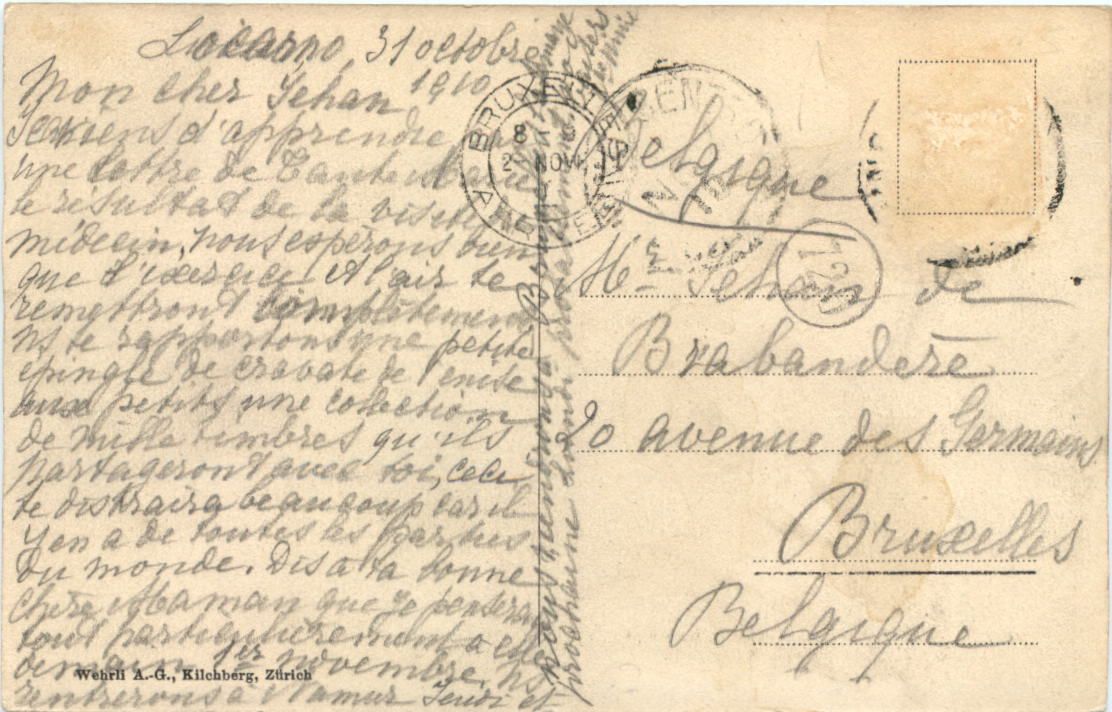 Locarno, 31 octobre
1910
Mon cher Jehan
Je viens d'apprendre
une lettre de Tante
le résultat de la visite
médecin, nous espérons bien
que l'exercice & l'air te
remettront complètement
ns te rapportons une petite
épingle de cravate de Venise
aux petits une collection
de mille timbres qu'ils
partageront avec toi, ceci
te distraira beaucoup car il
y en a de toutes les parties
du monde. Dis à ta bonne
chère Maman que je penserai
tout particulièrement à elle
demain 1er novembre. Ns
rentrerons à Namur Jeudi et
nous viendrons
prochaine
Belgique
Mr Jehan de
Brabandère
20 avenue des Germains
Bruxelles
Belgique
BRUX
8
2 NOV
Wehrli A.-G., Kilchberg, Zürich